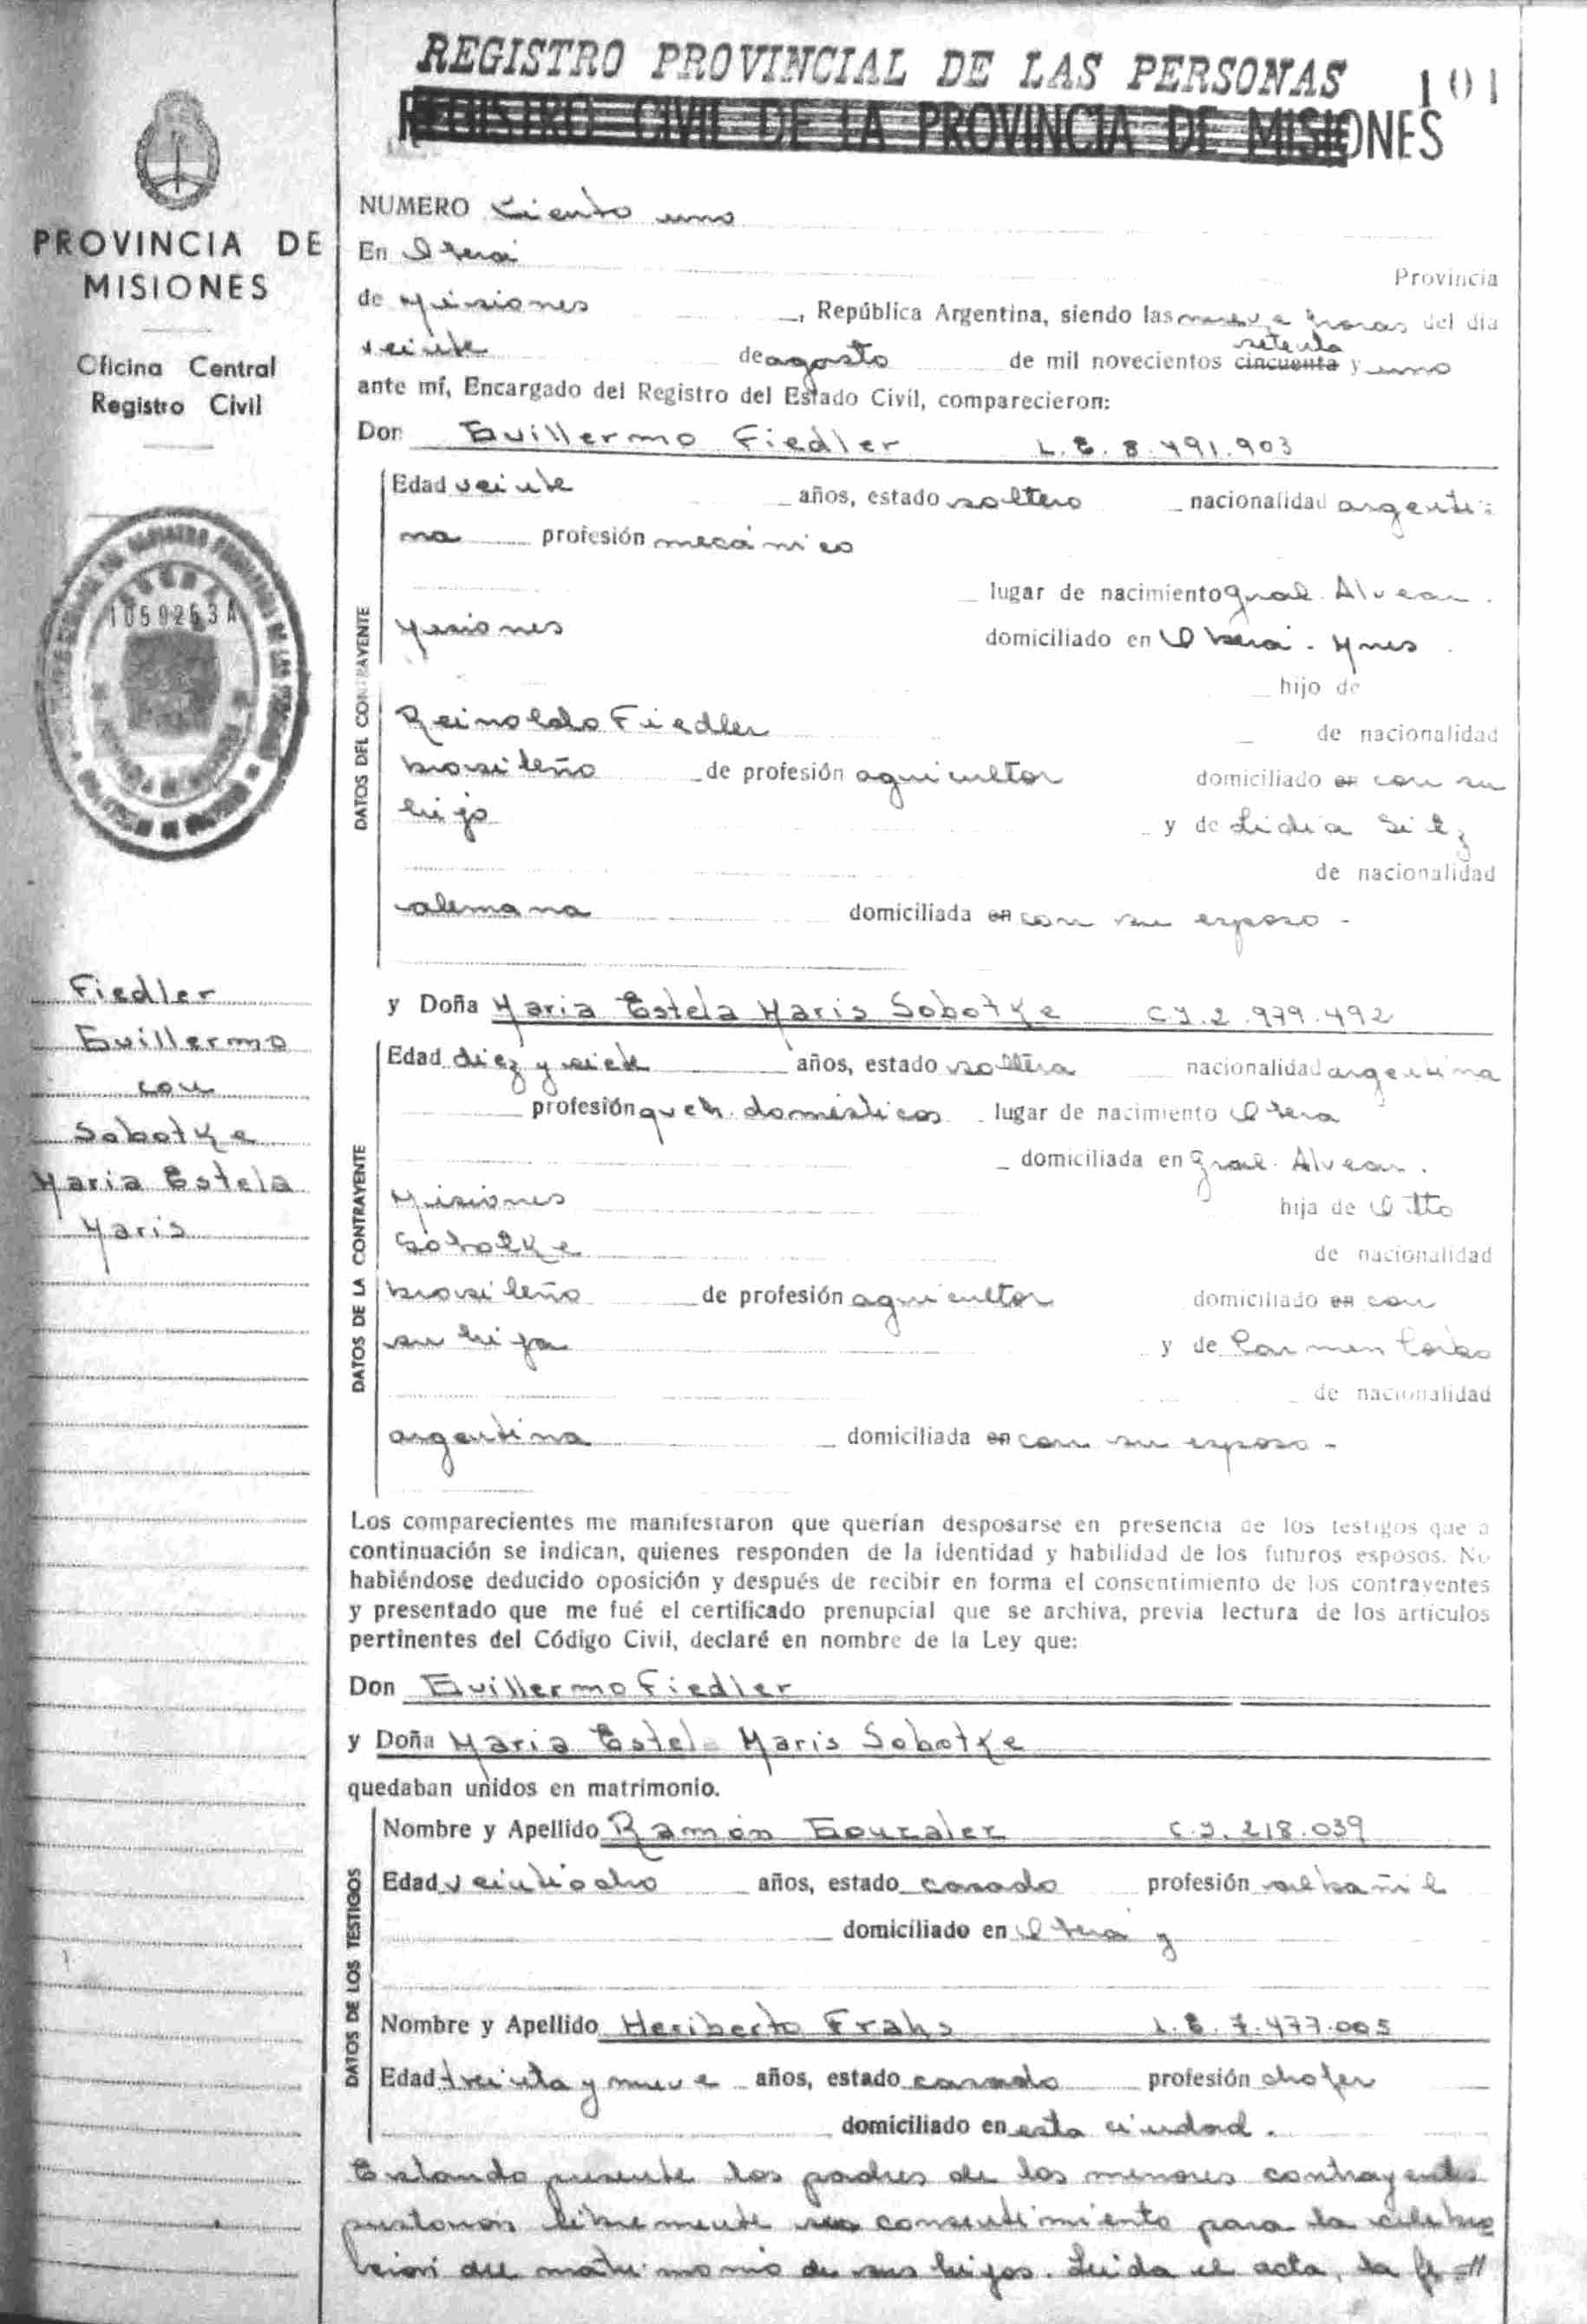 REGISTRO PROVINCIAL DE LAS PERSONAS
101
REGISTRO CIVIL DE LA PROVINCIA DE MISIONES
PROVINCIA DE
MISIONES
Oficina Central
Registro Civil
1059263A
Fiedler
Guillermo
con
Sobotke
Maria Estela
Maris
NUMERO Ciento uno
En Oberá
Provincia
de Misiones, República Argentina, siendo las nueve horas del dia
setenta
veinte de agosto de mil novecientos cincuenta y uno
ante mí, Encargado del Registro del Estado Civil, comparecieron:
Don Guillermo Fiedler L.E. 8.491.903
DATOS DEL CONTRAYENTE
Edad veinte años, estado soltero nacionalidad argenti-
na profesión mecánico
lugar de nacimiento Gral. Alvear.
Misiones domiciliado en Oberá. Mnes.
hijo de
Reinoldo Fiedler de nacionalidad
brasileño de profesión agricultor domiciliado en con su
hijo y de Lidia Silz
de nacionalidad
alemana domiciliada en con su esposo -
y Doña Maria Estela Maris Sobotke C.I. 2.979.492
DATOS DE LA CONTRAYENTE
Edad diez y siete años, estado soltera nacionalidad argentina
profesión queh. domésticos lugar de nacimiento Oberá
domiciliada en Gral. Alvear.
Misiones hija de Otto
Sobotke de nacionalidad
brasileño de profesión agricultor domiciliado en con
su hija y de Carmen
de nacionalidad
argentina domiciliada en con su esposo -
Los comparecientes me manifestaron que querían desposarse en presencia de los testigos que a
continuación se indican, quienes responden de la identidad y habilidad de los futuros esposos. No
habiéndose deducido oposición y después de recibir en forma el consentimiento de los contrayentes
y presentado que me fué el certificado prenupcial que se archiva, previa lectura de los artículos
pertinentes del Código Civil, declaré en nombre de la Ley que:
Don Guillermo Fiedler
y Doña Maria Estela Maris Sobotke
quedaban unidos en matrimonio.
DATOS DE LOS TESTIGOS
Nombre y Apellido Ramón Gonzalez C.I. 218.039
Edad veintiocho años, estado casado profesión albañil
domiciliado en Oberá y
Nombre y Apellido Heriberto Frahs L.E. 7.477.005
Edad treinta y nueve años, estado casado profesión chofer
domiciliado en esta ciudad.
Estando presente los padres de los menores contrayentes
prestaron libremente su consentimiento para la celebra
ción del matrimonio de sus hijos. Leida el acta, la fir=//